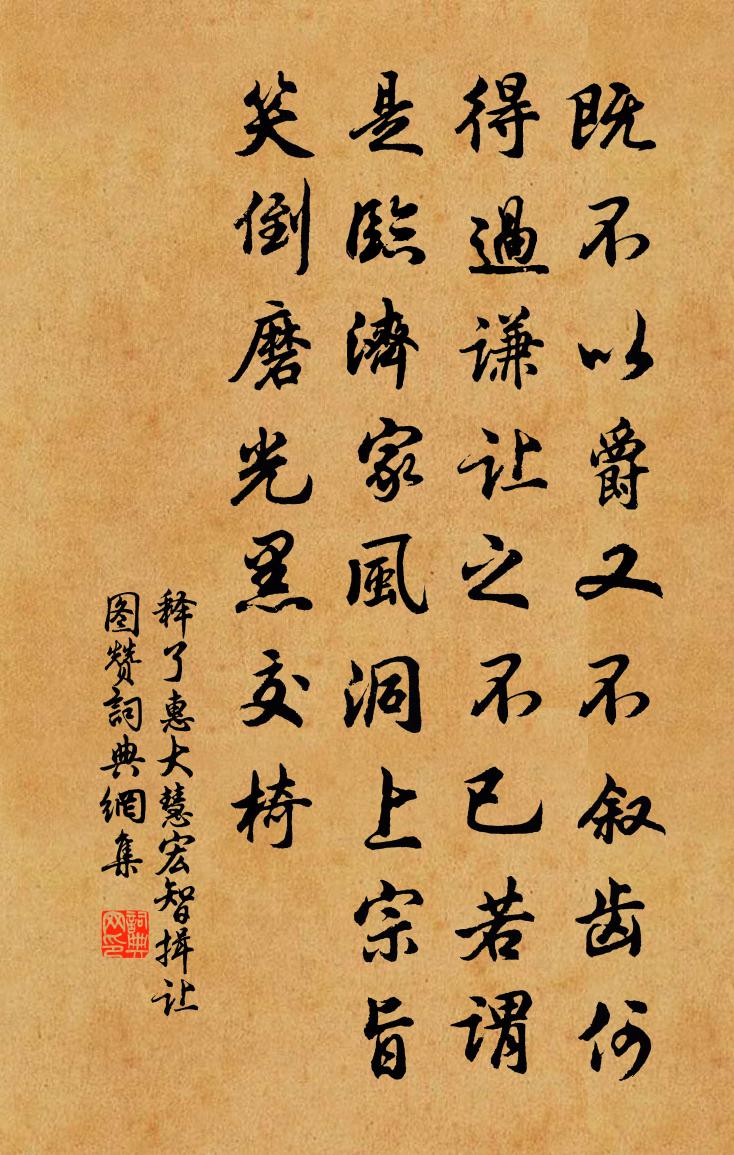 既不以爵又不叙齿何
得過谦让之不已若谓
是臨濟家風洞上宗旨
笑倒磨光黑交椅
释了惠大慧宏智揖让
图赞詞典網集
詞典网印